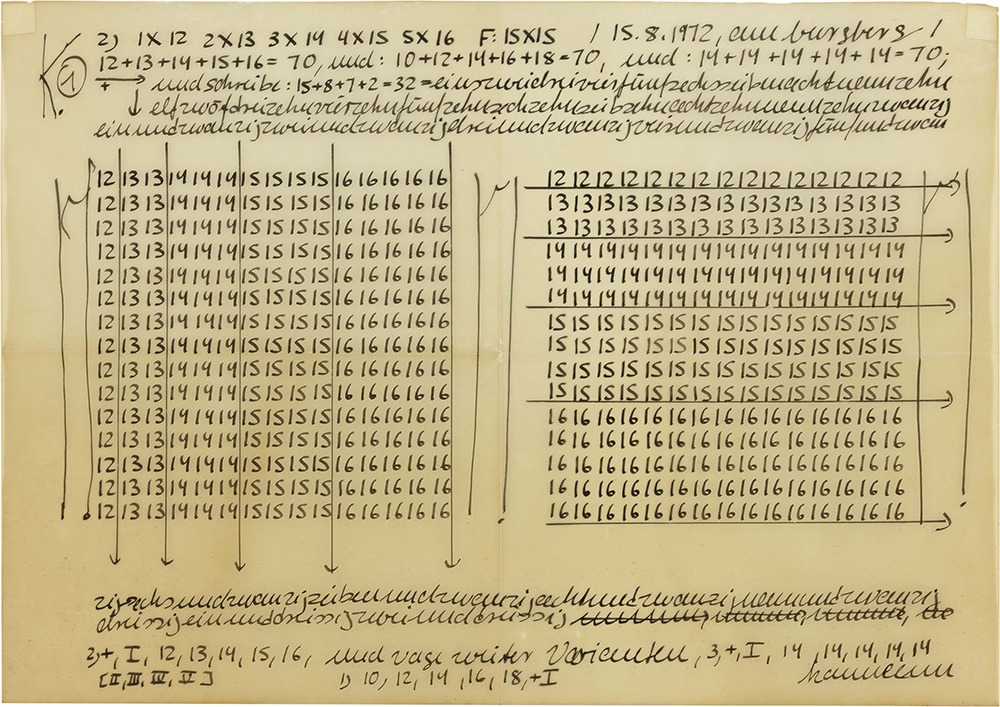 K.
2) 1X12 2X13 3X14 4X15 5X16 F: 15X15 / 15.8.1972, am burgberg /
① 12+13+14+15+16=70, und: 10+12+14+16+18=70, und: 14+14+14+14+14=70;
+ → und schreibe: 15+8+7+2=32=einszweidreivierfünfsechssiebenachtneunzehn
↓ elfzwölfdreizehnvierzehnfünfzehnsechzehnsiebzehnachtzehnneunzehnzwanzig
einundzwanzigzweiundzwanzigdreiundzwanzigvierundzwanzigfünfundzwan
12 13 13 14 14 14 15 15 15 15 16 16 16 16 16 12 12 12 12 12 12 12 12 12 12 12 12 12 12 12
12 13 13 14 14 14 15 15 15 15 16 16 16 16 16 13 13 13 13 13 13 13 13 13 13 13 13 13 13 13
12 13 13 14 14 14 15 15 15 15 16 16 16 16 16 13 13 13 13 13 13 13 13 13 13 13 13 13 13 13
12 13 13 14 14 14 15 15 15 15 16 16 16 16 16 14 14 14 14 14 14 14 14 14 14 14 14 14 14 14
12 13 13 14 14 14 15 15 15 15 16 16 16 16 16 14 14 14 14 14 14 14 14 14 14 14 14 14 14 14
12 13 13 14 14 14 15 15 15 15 16 16 16 16 16 14 14 14 14 14 14 14 14 14 14 14 14 14 14 14
12 13 13 14 14 14 15 15 15 15 16 16 16 16 16 15 15 15 15 15 15 15 15 15 15 15 15 15 15 15
12 13 13 14 14 14 15 15 15 15 16 16 16 16 16 15 15 15 15 15 15 15 15 15 15 15 15 15 15 15
12 13 13 14 14 14 15 15 15 15 16 16 16 16 16 15 15 15 15 15 15 15 15 15 15 15 15 15 15 15
12 13 13 14 14 14 15 15 15 15 16 16 16 16 16 15 15 15 15 15 15 15 15 15 15 15 15 15 15 15
12 13 13 14 14 14 15 15 15 15 16 16 16 16 16 16 16 16 16 16 16 16 16 16 16 16 16 16 16 16
12 13 13 14 14 14 15 15 15 15 16 16 16 16 16 16 16 16 16 16 16 16 16 16 16 16 16 16 16 16
12 13 13 14 14 14 15 15 15 15 16 16 16 16 16 16 16 16 16 16 16 16 16 16 16 16 16 16 16 16
12 13 13 14 14 14 15 15 15 15 16 16 16 16 16 16 16 16 16 16 16 16 16 16 16 16 16 16 16 16
12 13 13 14 14 14 15 15 15 15 16 16 16 16 16 16 16 16 16 16 16 16 16 16 16 16 16 16 16 16
zigsechsundzwanzigsiebenundzwanzigachtundzwanzigneunundzwanzig
dreissigeinunddreissigzweiunddreissig
2,+, I, 12, 13, 14, 15, 16, und vage weiter Varianten, 3,+,I, 14 ,14,14,14,14
[II,III,IV,V] 1) 10, 12, 14 ,16, 18,+I